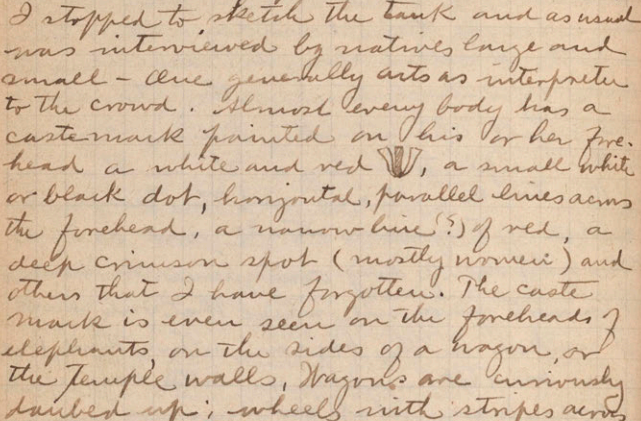 I stopped to sketch the tank and as usual
was interviewed by natives large and
small - One generally acts as interpreter
to the crowd. Almost every body has a
caste mark painted on his or her fore-
head a white and red , a small white
or black dot, horizontal, parallel lines across
the forehead, a narrow line (?) of red, a
deep crimson spot (mostly women) and
others that I have forgotten. The caste
mark is even seen on the foreheads of
elephants, on the sides of a wagon, or
the Temple walls. Wagons are curiously
daubed up; wheels with stripes across